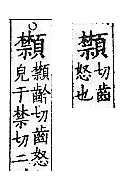 䫴
切齒
怒也
䫴
䫴齡切齒怒
皃于禁切二